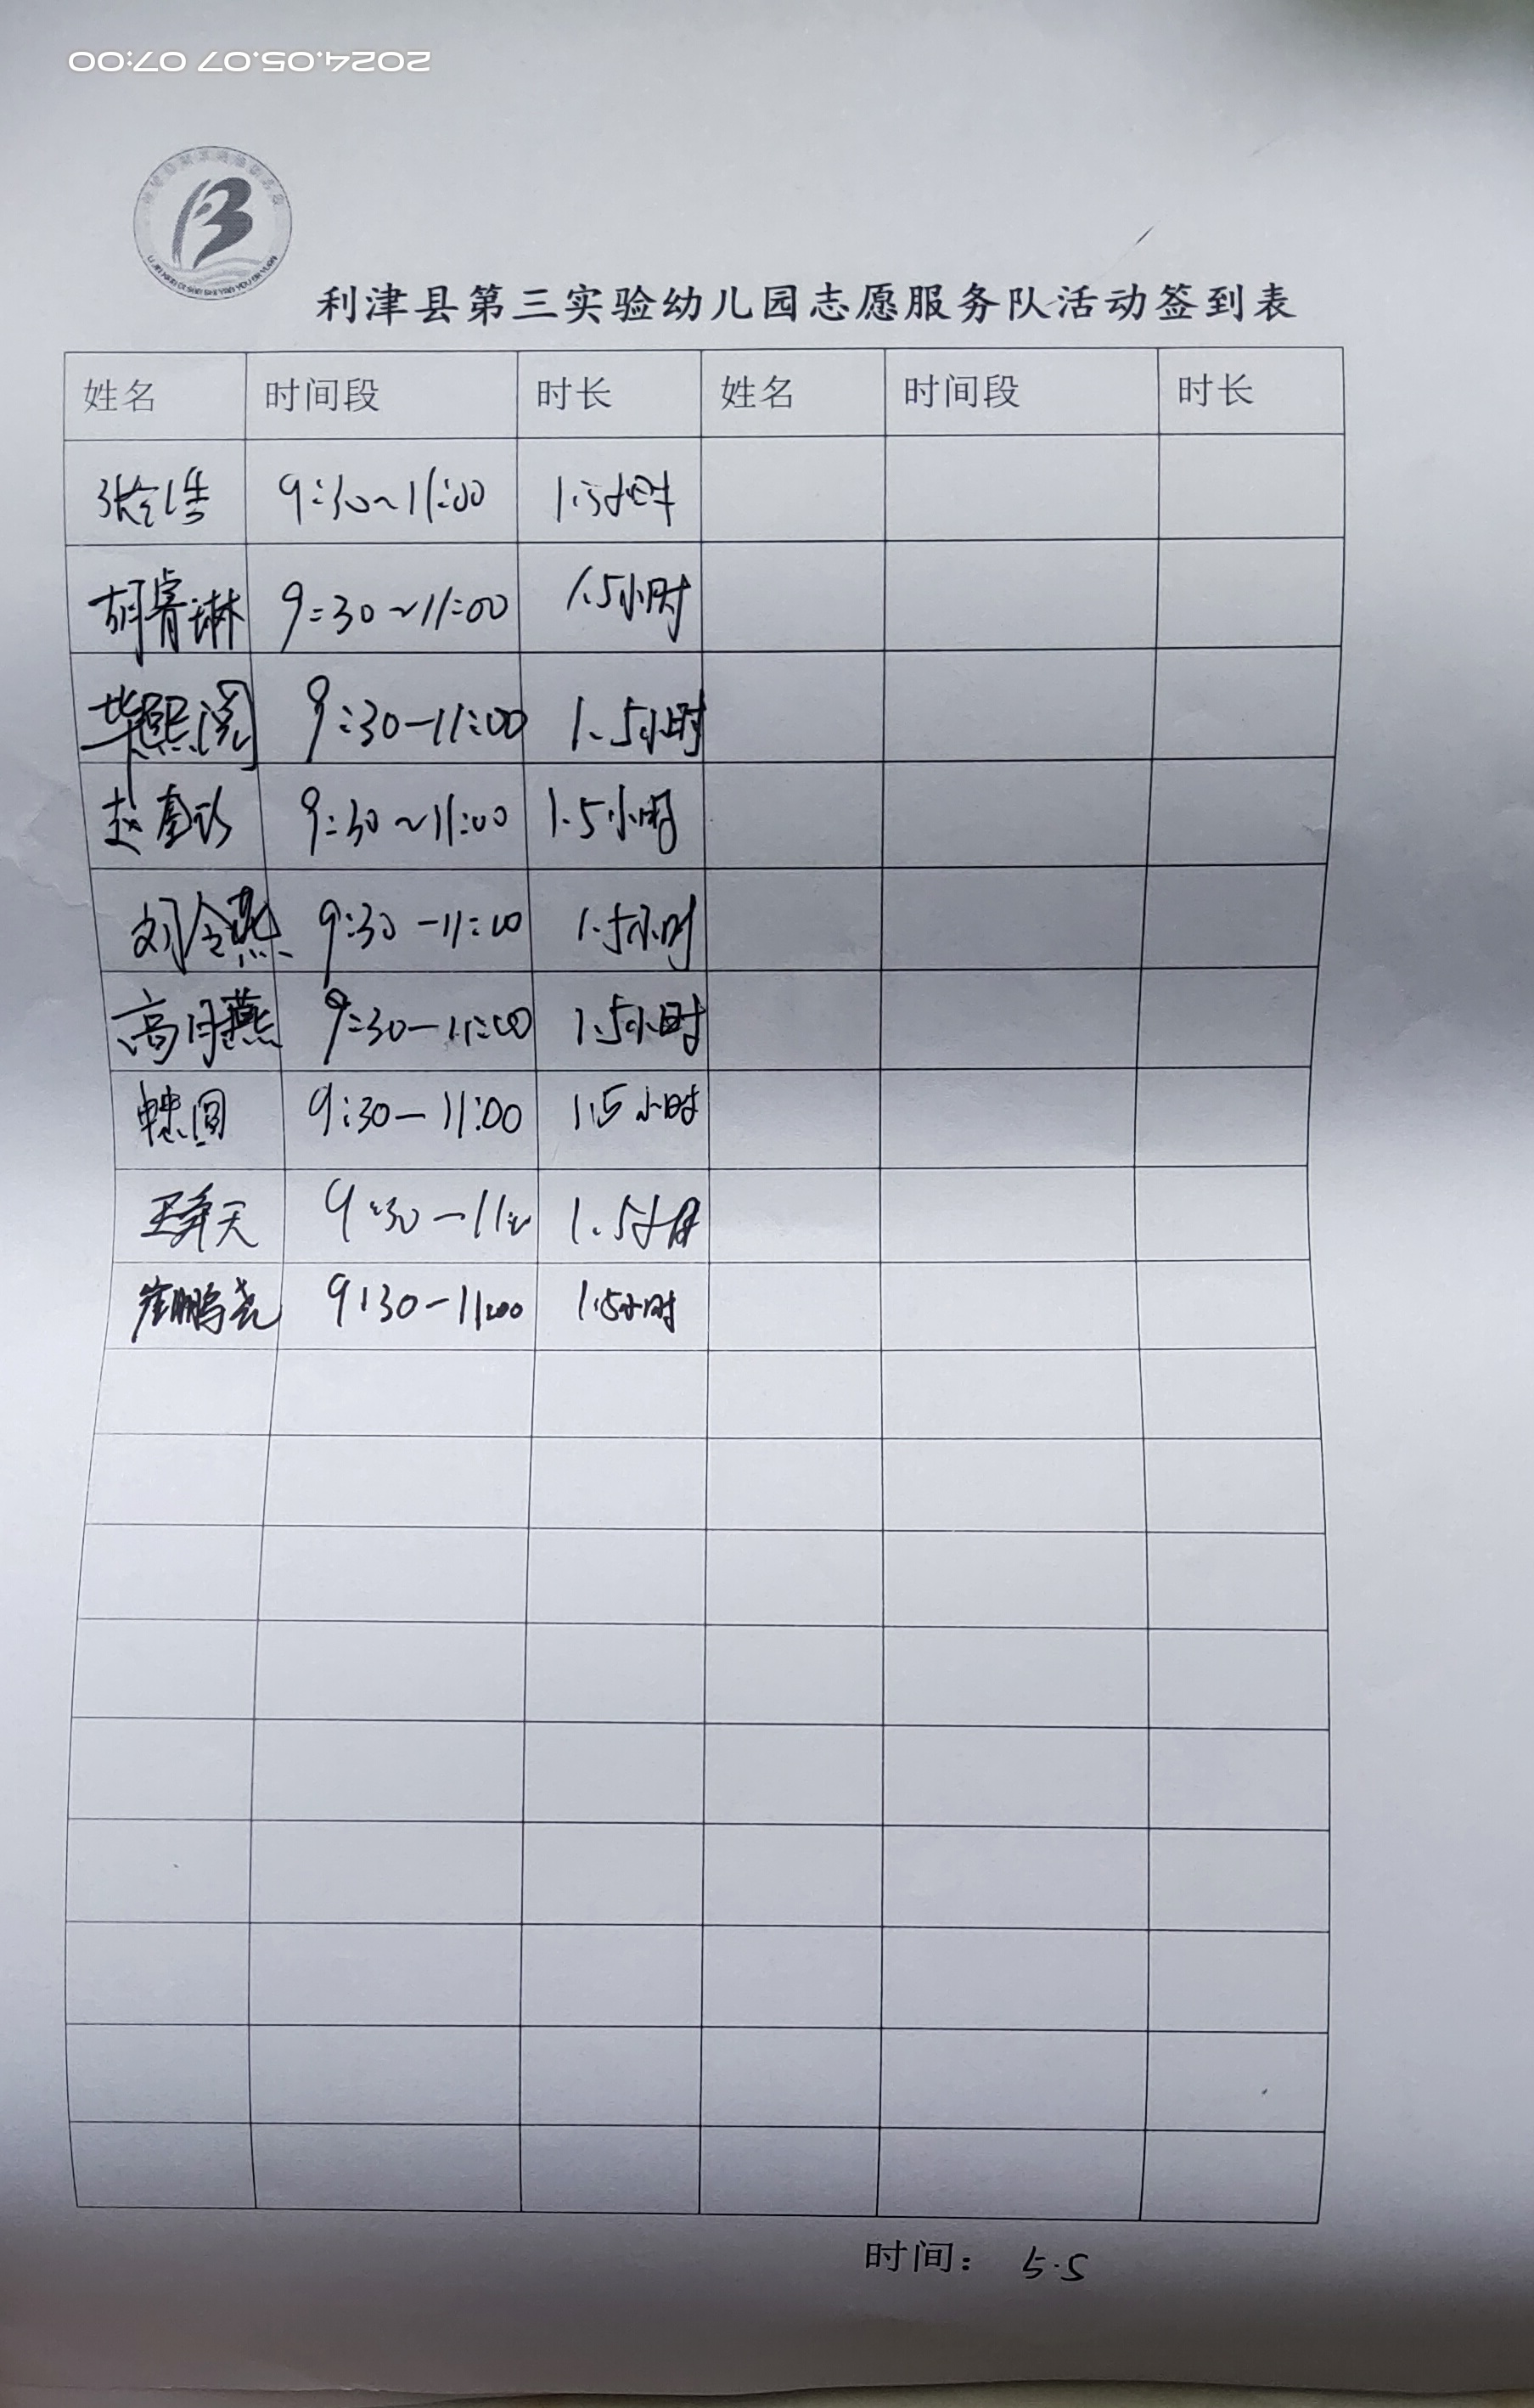 2024.05.07 07:00
利津县第三实验幼儿园志愿服务队活动签到表
姓名 时间段 时长 姓名 时间段 时长
9:30~11:00 1.5小时
胡睿琳 9:30~11:00 1.5小时
毕熙阅 9:30-11:00 1.5小时
赵 9:30~11:00 1.5小时
刘令燕 9:30-11:00 1.5小时
高月燕 9:30-11:00 1.5小时
9:30-11:00 1.5小时
天 9:30-11:00 1.5小时
崔鹏尧 9:30-11:00 1.5小时
时间: 5.5